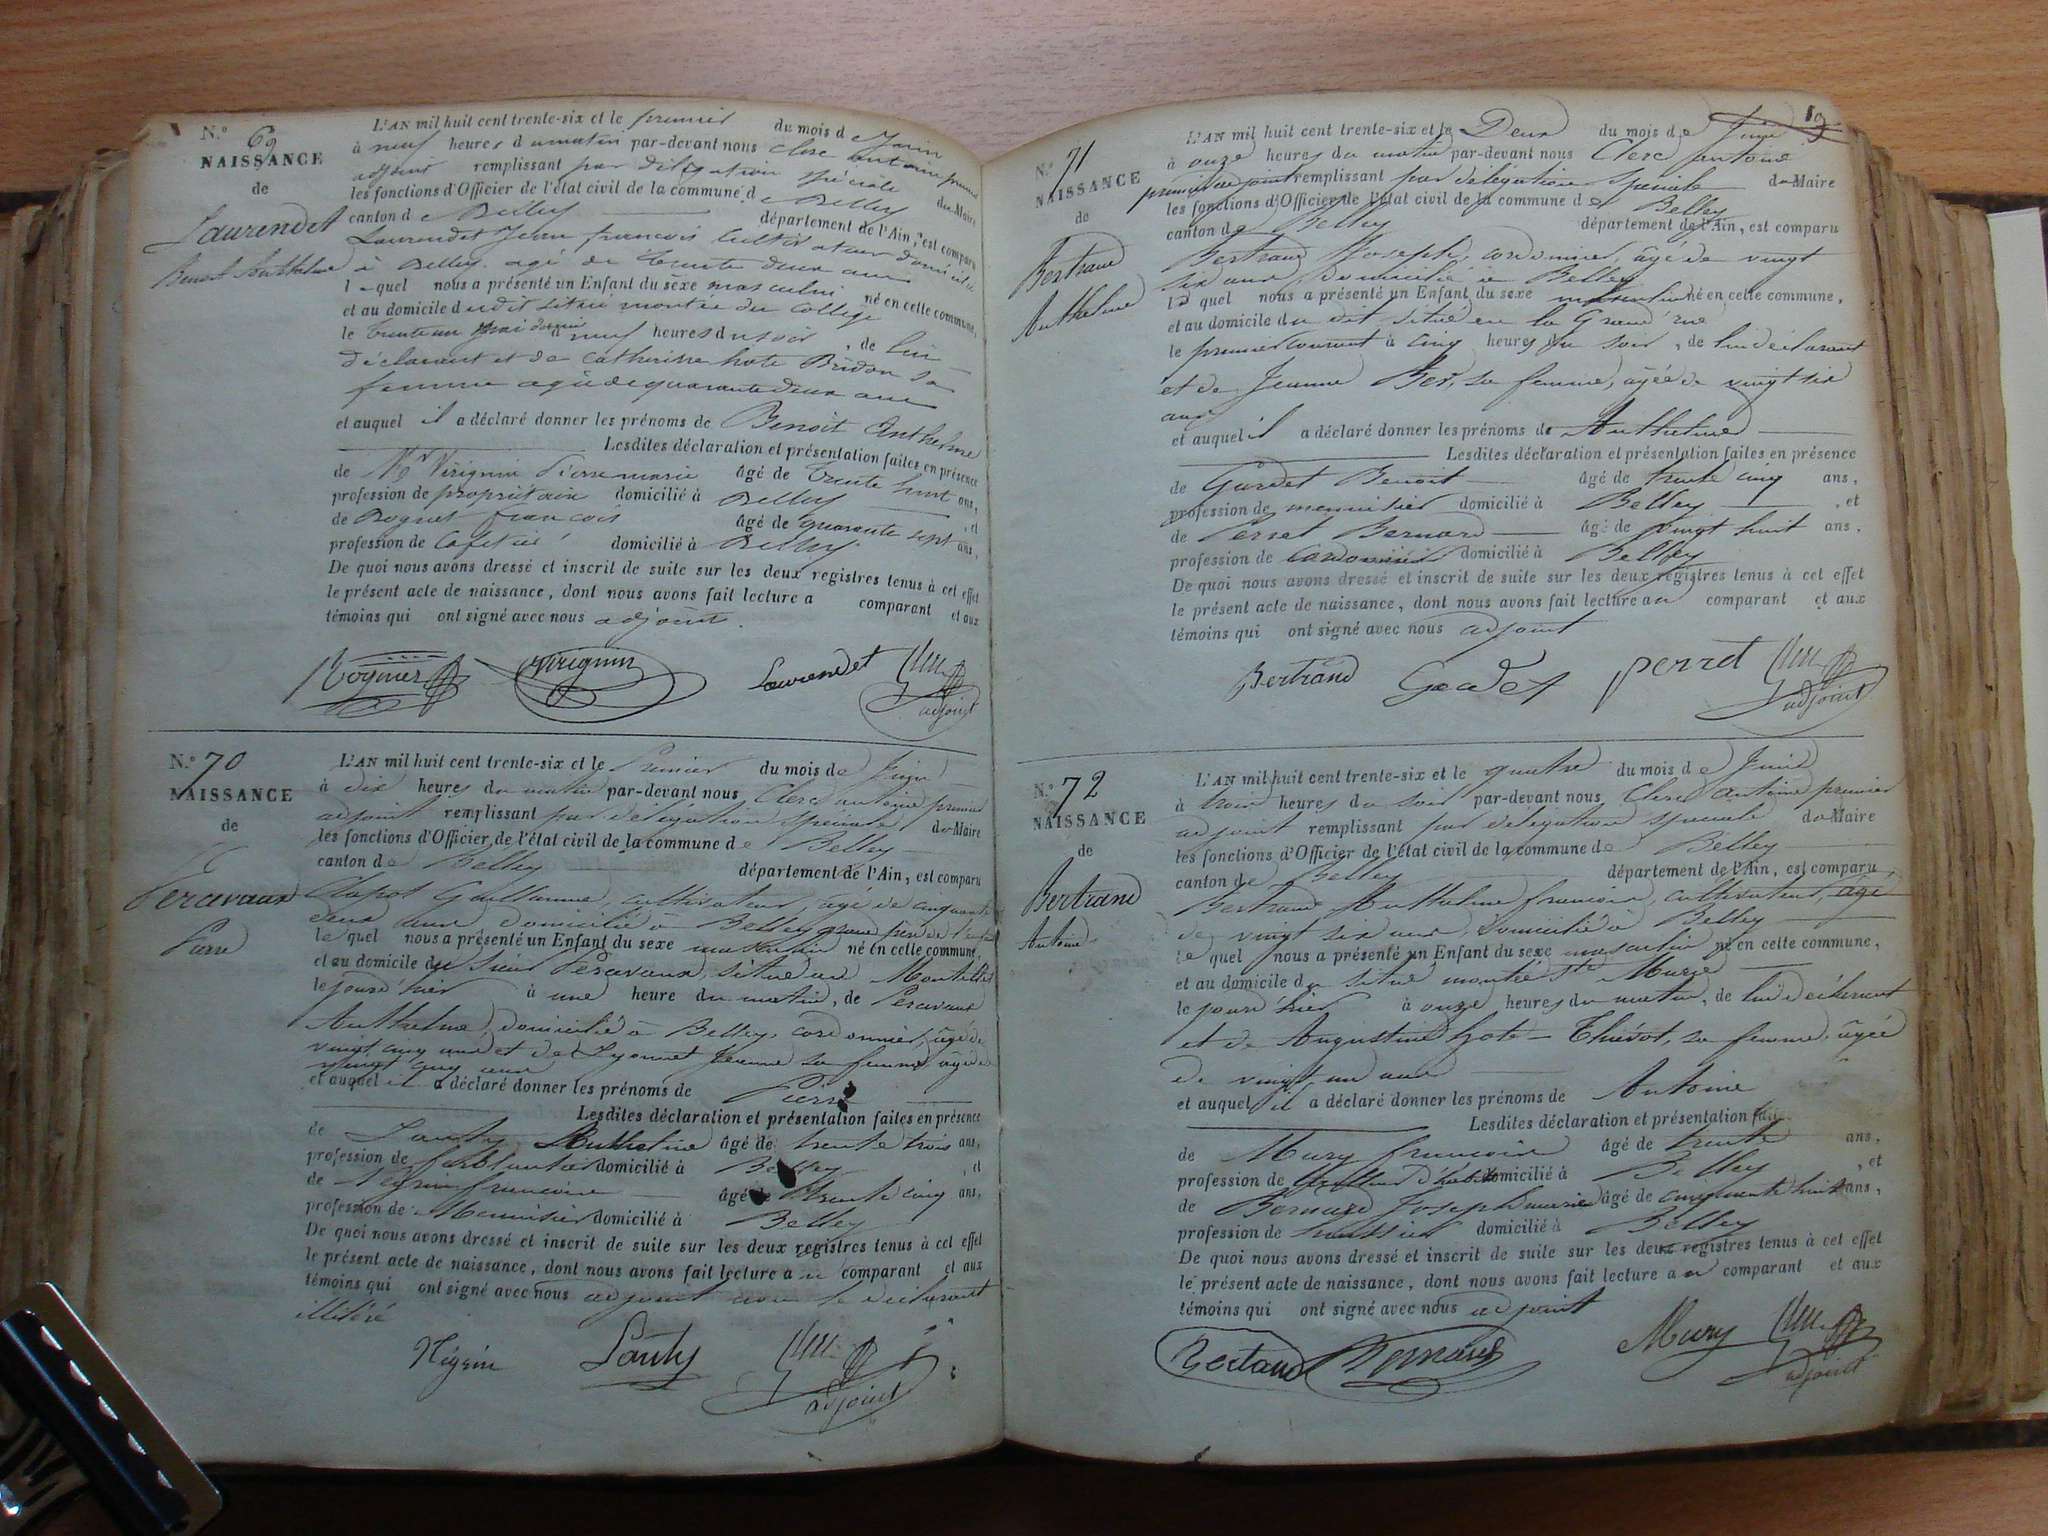 N.° 69
NAISSANCE
de
Laurendet
Benoit Anthelme
L'AN mil huit cent trente-six et le premier du mois de Juin
à neuf heures du matin par-devant nous Clerc antoine premier
adjoint remplissant par délégation spéciale du Maire
les fonctions d'Officier de l'état civil de la commune de Belley
canton de Belley département de l'Ain, est comparu
Laurendet Jean françois cultivateur domicilié
à Belley agé de trente deux ans
lequel nous a présenté un Enfant du sexe masculin né en cette commune,
et au domicile dudit situé montée du College
le trente un mai dernier à neuf heures du soir, de lui
déclarant et de Catherine hote Bridon sa
femme agée de quarante deux ans
et auquel il a déclaré donner les prénoms de Benoit Anthelme
Lesdites déclaration et présentation faites en présence
de Mr Virignin Pierre marie âgé de trente huit ans,
profession de propriétaire domicilié à Belley, et
de Rognet françois âgé de quarante sept ans,
profession de Cafetier domicilié à Belley
De quoi nous avons dressé et inscrit de suite sur les deux registres tenus à cet effet
le présent acte de naissance, dont nous avons fait lecture a comparant et aux
témoins qui ont signé avec nous adjoint.
Virignin Laurendet
adjoint
N.° 70
NAISSANCE
de
Peravaux
Pierre
L'AN mil huit cent trente-six et le Premier du mois de Juin
à dix heures du matin par-devant nous Clerc antoine premier
adjoint remplissant par délégation spéciale du Maire
les fonctions d'Officier de l'état civil de la commune de Belley
canton de Belley département de l'Ain, est comparu
Clapot Guillaume, cultivateur, agé de cinquante
deux ans domicilié à Belley grand père de l'enfant
lequel nous a présenté un Enfant du sexe masculin né en cette commune,
et au domicile du sieur Peravaux, situé au
le jourd'hier à une heure du matin, de Peravaux
Anthelme, domicilié à Belley, cordonnier, âgé de
vingt cinq ans et de Lyonnet Jeanne sa femme âgée de
vingt cinq ans
et auquel il a déclaré donner les prénoms de Pierre
Lesdites déclaration et présentation faites en présence
de Lauty Anthelme âgé de trente trois ans,
profession de ferblantier domicilié à Belley, et
de Négrin françois âgé de trente cinq ans,
profession de Menuisier domicilié à Belley
De quoi nous avons dressé et inscrit de suite sur les deux registres tenus à cet effet
le présent acte de naissance, dont nous avons fait lecture au comparant et aux
témoins qui ont signé avec nous adjoint non le déclarant
illitéré
Négrin Lauty
adjoint
19
N.° 71
NAISSANCE
de
Bertrand
Anthelme
L'AN mil huit cent trente-six et le Deux du mois de Juin
à onze heures du matin par-devant nous Clerc antoine
premier adjoint remplissant par délégation spéciale du Maire
les fonctions d'Officier de l'état civil de la commune de Belley
canton de Belley département de l'Ain, est comparu
Bertrand Joseph, cordonnier, âgé de vingt
six ans, domicilié à Belley
lequel nous a présenté un Enfant du sexe masculin né en cette commune,
et au domicile du dit situé en la Grand'rue
le premier courant à cinq heures du soir, de lui déclarant
et de Jeanne Ber, sa femme, âgée de vingt six
ans
et auquel il a déclaré donner les prénoms de Anthelme
Lesdites déclaration et présentation faites en présence
de Gardet Benoit âgé de trente cinq ans,
profession de menuisier domicilié à Belley, et
de Perret Bernard âgé de vingt huit ans,
profession de Cordonnier domicilié à Belley
De quoi nous avons dressé et inscrit de suite sur les deux registres tenus à cet effet
le présent acte de naissance, dont nous avons fait lecture au comparant et aux
témoins qui ont signé avec nous adjoint
Bertrand Gardet perret
adjoint
N.° 72
NAISSANCE
de
Bertrand
Antoine
L'AN mil huit cent trente-six et le quatre du mois de Juin
à trois heures du soir par-devant nous Clerc Antoine premier
adjoint remplissant par délégation spéciale du Maire
les fonctions d'Officier de l'état civil de la commune de Belley
canton de Belley département de l'Ain, est comparu
Bertrand Anthelme françois, cultivateur, âgé
de vingt six ans, domicilié à Belley
lequel nous a présenté un Enfant du sexe masculin né en cette commune,
et au domicile du situé montée Ste Marie
le jourd'hier à onze heures du matin, de lui déclarant
et de Augustine hote-Thiévot, sa femme, âgée
de vingt un ans
et auquel il a déclaré donner les prénoms de Antoine
Lesdites déclaration et présentation
de Mury françois âgé de trente ans,
profession de tailleur d'habits domicilié à Belley, et
de Bernard Joseph marie âgé de cinquante huit ans,
profession de huissier domicilié à Belley
De quoi nous avons dressé et inscrit de suite sur les deux registres tenus à cet effet
le présent acte de naissance, dont nous avons fait lecture au comparant et aux
témoins qui ont signé avec nous adjoint
Bertrand Bernard Mury
adjoint